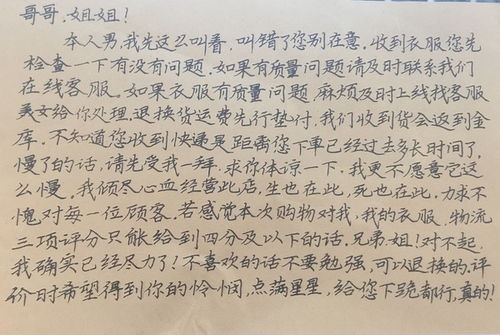 哥哥,姐姐!
本人男,我先这么叫着,叫错了您别在意,收到衣服您先
检查一下有没有问题.如果有质量问题请及时联系我们
在线客服。如果衣服有质量问题,麻烦及时上线找客服
美女给你处理,退换货运费先行垫付,我们收到货会返到金
库。不知道您收到快递是距离您下单已经过去多长时间了,
慢了的话,请先受我一拜.求你体谅一下.我更不愿意它这
么慢,我倾尽心血经营此店,生也在此,死也在此,力求不
愧对每一位顾客.若感觉本次购物对我,我的衣服.物流
三项评分只能给到四分及以下的话.兄弟.姐!对不起.
我确实已经尽力了!不喜欢的话不要勉强,可以退换的.评
价时希望得到你的怜悯,点满星星,给您下跪都行,真的!